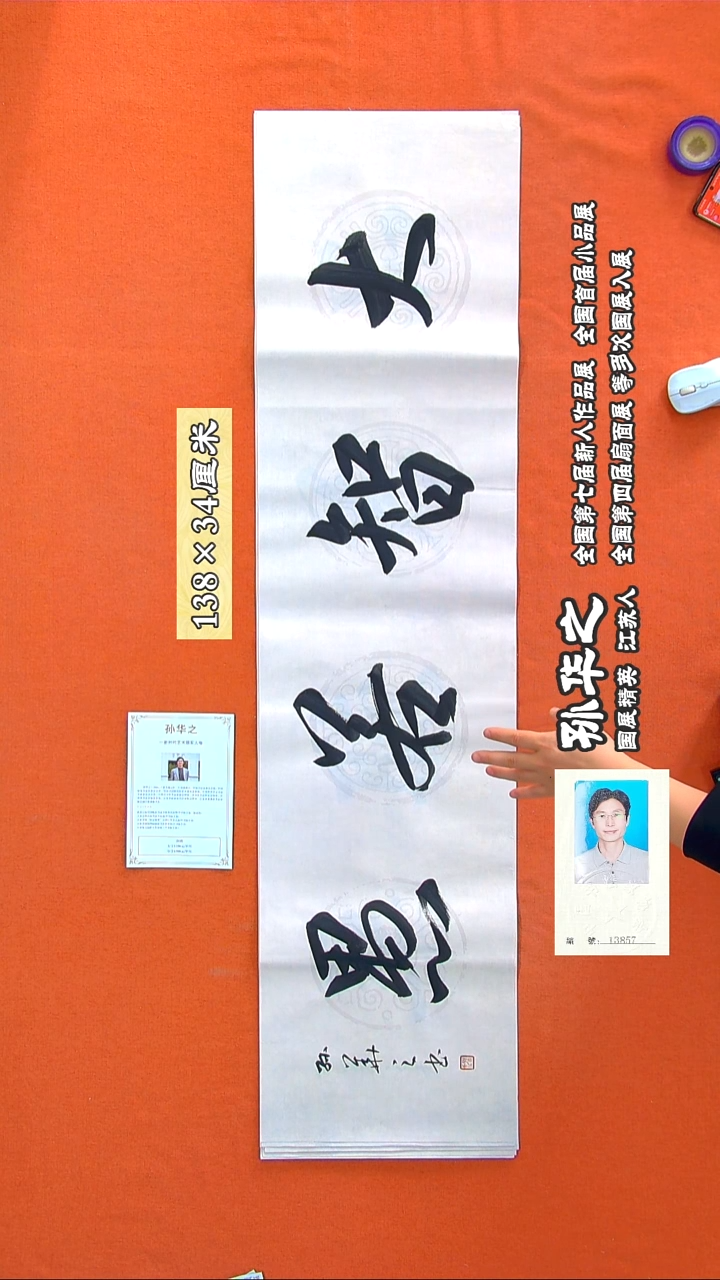 138×34厘米
孙华之
大智若愚
孙华之书
孙华之
国展精英 江苏人
全国第七届新人作品展 全国首届小品展
全国第四届扇面展 等多次国展入展
編 號: 13857